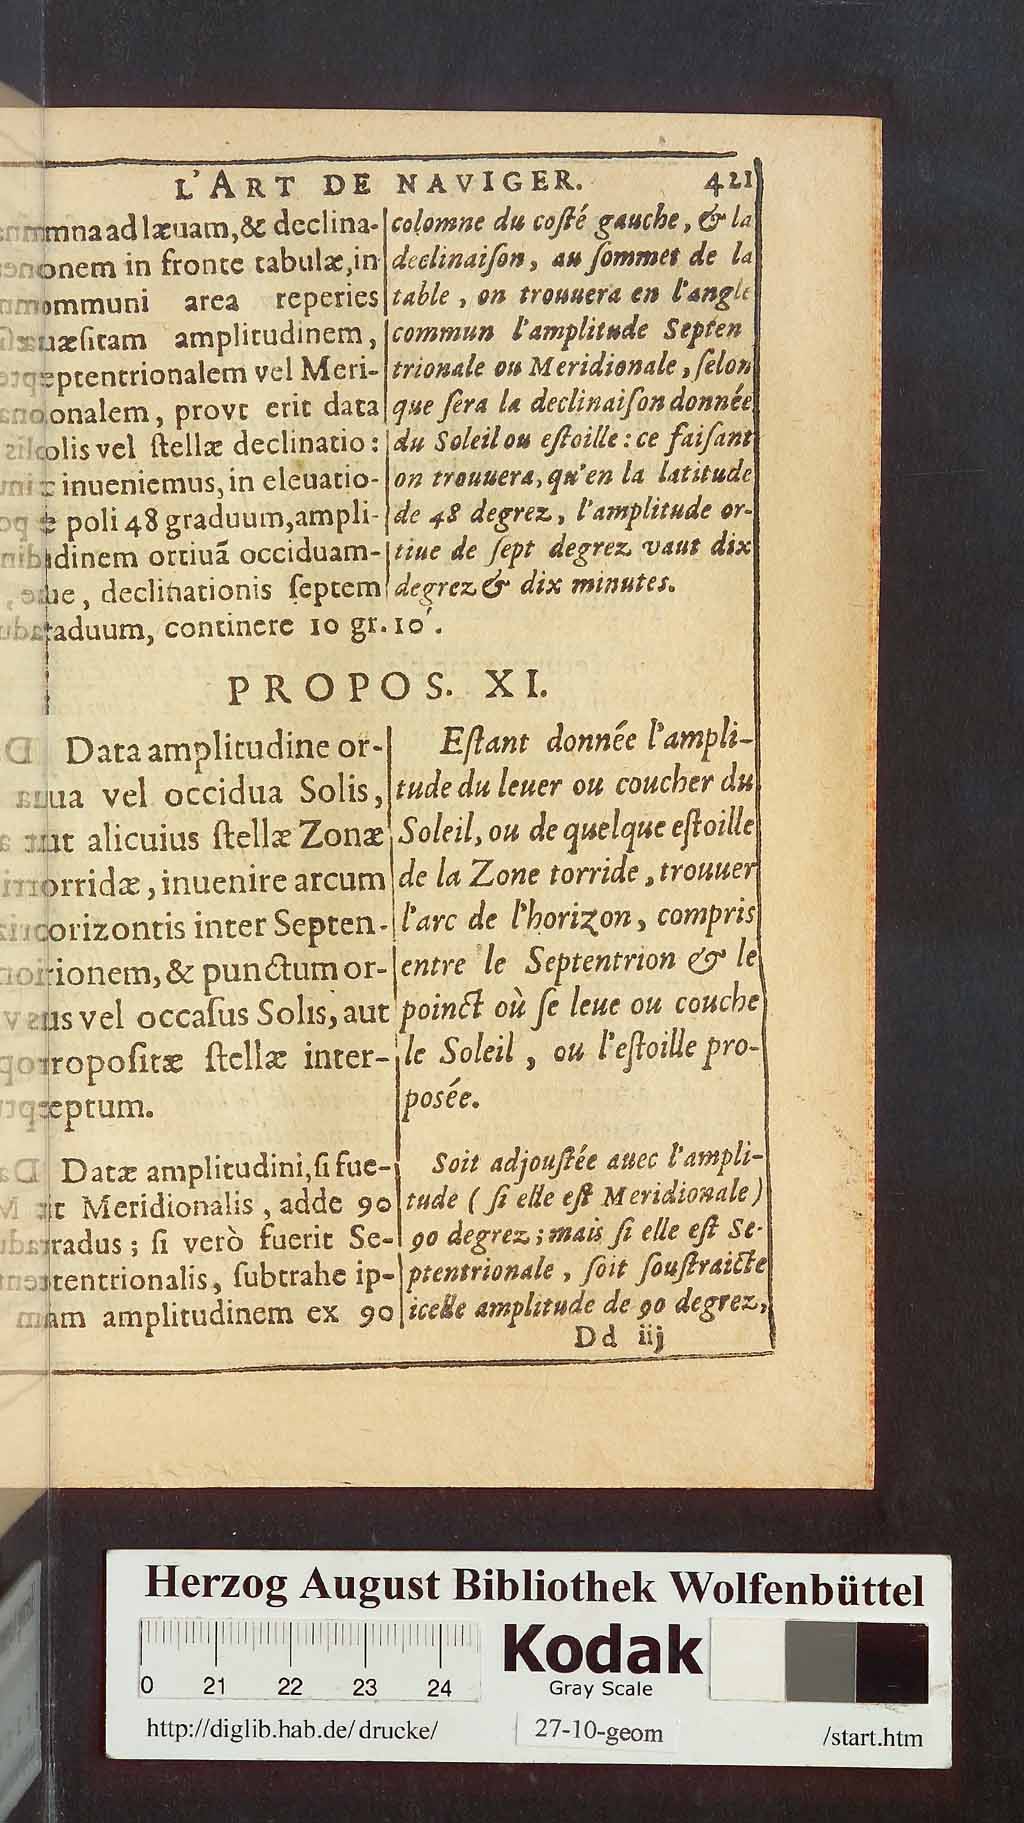 L'ART DE NAVIGER. 421
mna ad læuam, & declina-
onem in fronte tabulæ, in
ommuni area reperies
uæsitam amplitudinem,
eptentrionalem vel Meri-
onalem, provt erit data
olis vel stellæ declinatio:
inueniemus, in eleuatio-
e poli 48 graduum, ampli-
dinem ortiuã occiduam-
ue, declinationis septem
aduum, continere 10 gr. 10'.
colomne du costé gauche, & la
declinaison, au sommet de la
table, on trouuera en l'angle
commun l'amplitude Septen
trionale ou Meridionale, selon
que sera la declinaison donnée
du Soleil ou estoille: ce faisant
on trouuera, qu'en la latitude
de 48 degrez, l'amplitude or-
tiue de sept degrez vaut dix
degrez & dix minutes.
PROPOS. XI.
Data amplitudine or-
ua vel occidua Solis,
ut alicuius stellæ Zonæ
orridæ, inuenire arcum
orizontis inter Septen-
rionem, & punctum or-
us vel occasus Solis, aut
ropositæ stellæ inter-
eptum.
Datæ amplitudini, si fue-
it Meridionalis, adde 90
radus; si verò fuerit Se-
tentrionalis, subtrahe ip-
am amplitudinem ex 90
Estant donnée l'ampli-
tude du leuer ou coucher du
Soleil, ou de quelque estoille
de la Zone torride, trouuer
l'arc de l'horizon, compris
entre le Septentrion & le
poinct où se leue ou couche
le Soleil, ou l'estoille pro-
posée.
Soit adjoustée auec l'ampli-
tude (si elle est Meridionale)
90 degrez; mais si elle est Se-
ptentrionale, soit soustraicte
icelle amplitude de 90 degrez,
Dd iij
Herzog August Bibliothek Wolfenbüttel
0 21 22 23 24
Kodak
Gray Scale
http://diglib.hab.de/drucke/ 27-10-geom /start.htm